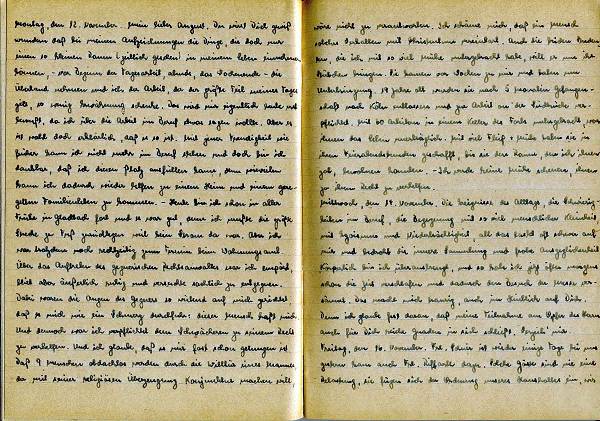 Montag, den 12. November. Mein lieber August. Du wirst Dich gewiß
wundern daß bei meinen Aufzeichnungen die Dinge, die doch nur
einen so kleinen Raum (zeitlich gesehen) in meinem Leben einnehmen
können, - vor Beginn der Tagesarbeit abends, das Wochenende - die
Überhand nehmen und ich der Arbeit, der der größte Teil meines Tages
gilt, so wenig Erwähnung schenke. Das wird mir eigentlich heute erst
bewußt, da ich über die Arbeit im Beruf etwas sagen wollte. Aber es
ist wohl doch erklärlich, daß es so ist. Mit jener Freudigkeit wie
früher kann ich nicht mehr im Beruf stehen und doch bin ich
dankbar, daß ich diesen Platz ausfüllen kann, denn
kann ich dadurch wieder helfen zu einem Heim und einem
Familienleben zu kommen. - Heute bin ich schon in aller
Frühe in Gladbach fort und es war gut, denn ich mußte die größte
Strecke zu Fuß zurücklegen weil kein da war. Aber ich
war trotzdem noch rechtzeitig zum Termin beim Wohnungsamt.
Über das Auftreten des gegnerischen Rechtsanwaltes war ich empört,
blieb aber äußerlich ruhig und versuchte sachlich zu entgegnen.
Dabei waren die Augen des Gegners so wütend auf mich gerichtet
daß es mich wie ein Schmerz durchfuhr: dieser Mensch haßt mich.
Und dennoch war ich verpflichtet dem Schwächeren zu seinem Recht
zu verhelfen. Und ich glaube, daß es mir fast schon gelungen ist
Daß 9 Menschen obdachlos werden durch die Willkür eines Mannes,
der mit seiner religiösen Überzeugung Konjunktur machen will,
wäre nicht zu verantworten. Ich schäme mich, daß ein Mensch
solches Verhalten mit Christentum vereinbart. Und die frühen
die ich mit so viel Mühe untergebracht habe, will er um ihr
Stübchen bringen. Sie kamen vor Wochen zu mir und baten um
Unterbringung. 19 Jahre alt wurden sie nach 5 monatiger Gefangen-
schaft nach Köln entlassen und zur Arbeit an der verpflichtet
mit 60 Arbeitern in einem Keller des untergebracht, war
ihnen das Leben unerträglich. Mit viel Fleiß & Mühe haben sie in
ihren Feierabendstunden geschafft, bis sie den Raum, den ich ihnen
gab, bewohnen konnten. - Ich werde keine Mühe scheuen, ihnen
zu ihrem Recht zu verhelfen.
Mittwoch, den 14. November. Die Ereignisse des Alltags, die Schwierig-
keiten im Beruf, die Begegnung mit so viel menschlicher Kleinheit
mit Egoismus und Niederträchtigkeit, all das lastet oft schwer auf
mir und bedroht die innere Sammlung und frohe Ausgeglichenheit
Körperlich bin ich überanstrengt, und so habe ich jetzt öfter morgens
schon die Zeit verschlafen und dadurch den Besuch der Messe ver-
säumt. Das macht mich traurig, auch im Hinblick auf Dich.
Denn ich glaube fest daran, daß meine Teilnahme am Opfer des Herrn
auch für Dich reiche Gnaden in sich schließt. Verzeih' mir
Freitag, den 16. November. Frl. ist wieder einige Tage bei uns
gestern kam auch Frl. dazu. Solche Gäste sind nie eine
Belastung, sie fügen sich der Ordnung unseres Haushaltes ein, wir